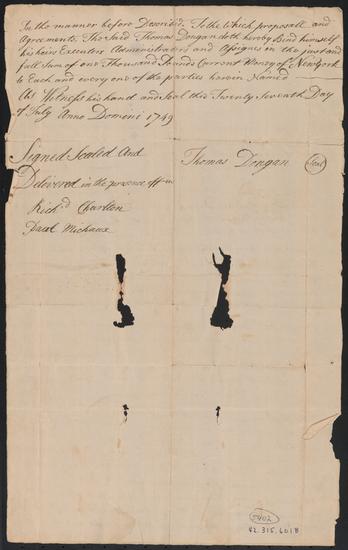 In the manner before Described. To the Which proposall and
Agreements. The Said Thomas Dongan doth hereby Bind himself
his heirs Executers Administrators and Assignes in the just and
full Sum of one Thousand Pounds Currant Money of New York
to Each and every one of the parties herein Named
As Witness his hand and Seal this Twenty Seventh Day
of July Anno Domini 1749
Signed Sealed And
Delivered in the presence off us
Thomas Dongan Seal
Rich'd Charlton
Paul Michaux
5402
42.315.601B